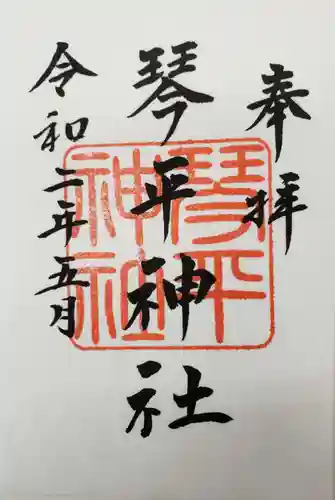 奉拝
琴平神社
令和二年五月
琴平
神社